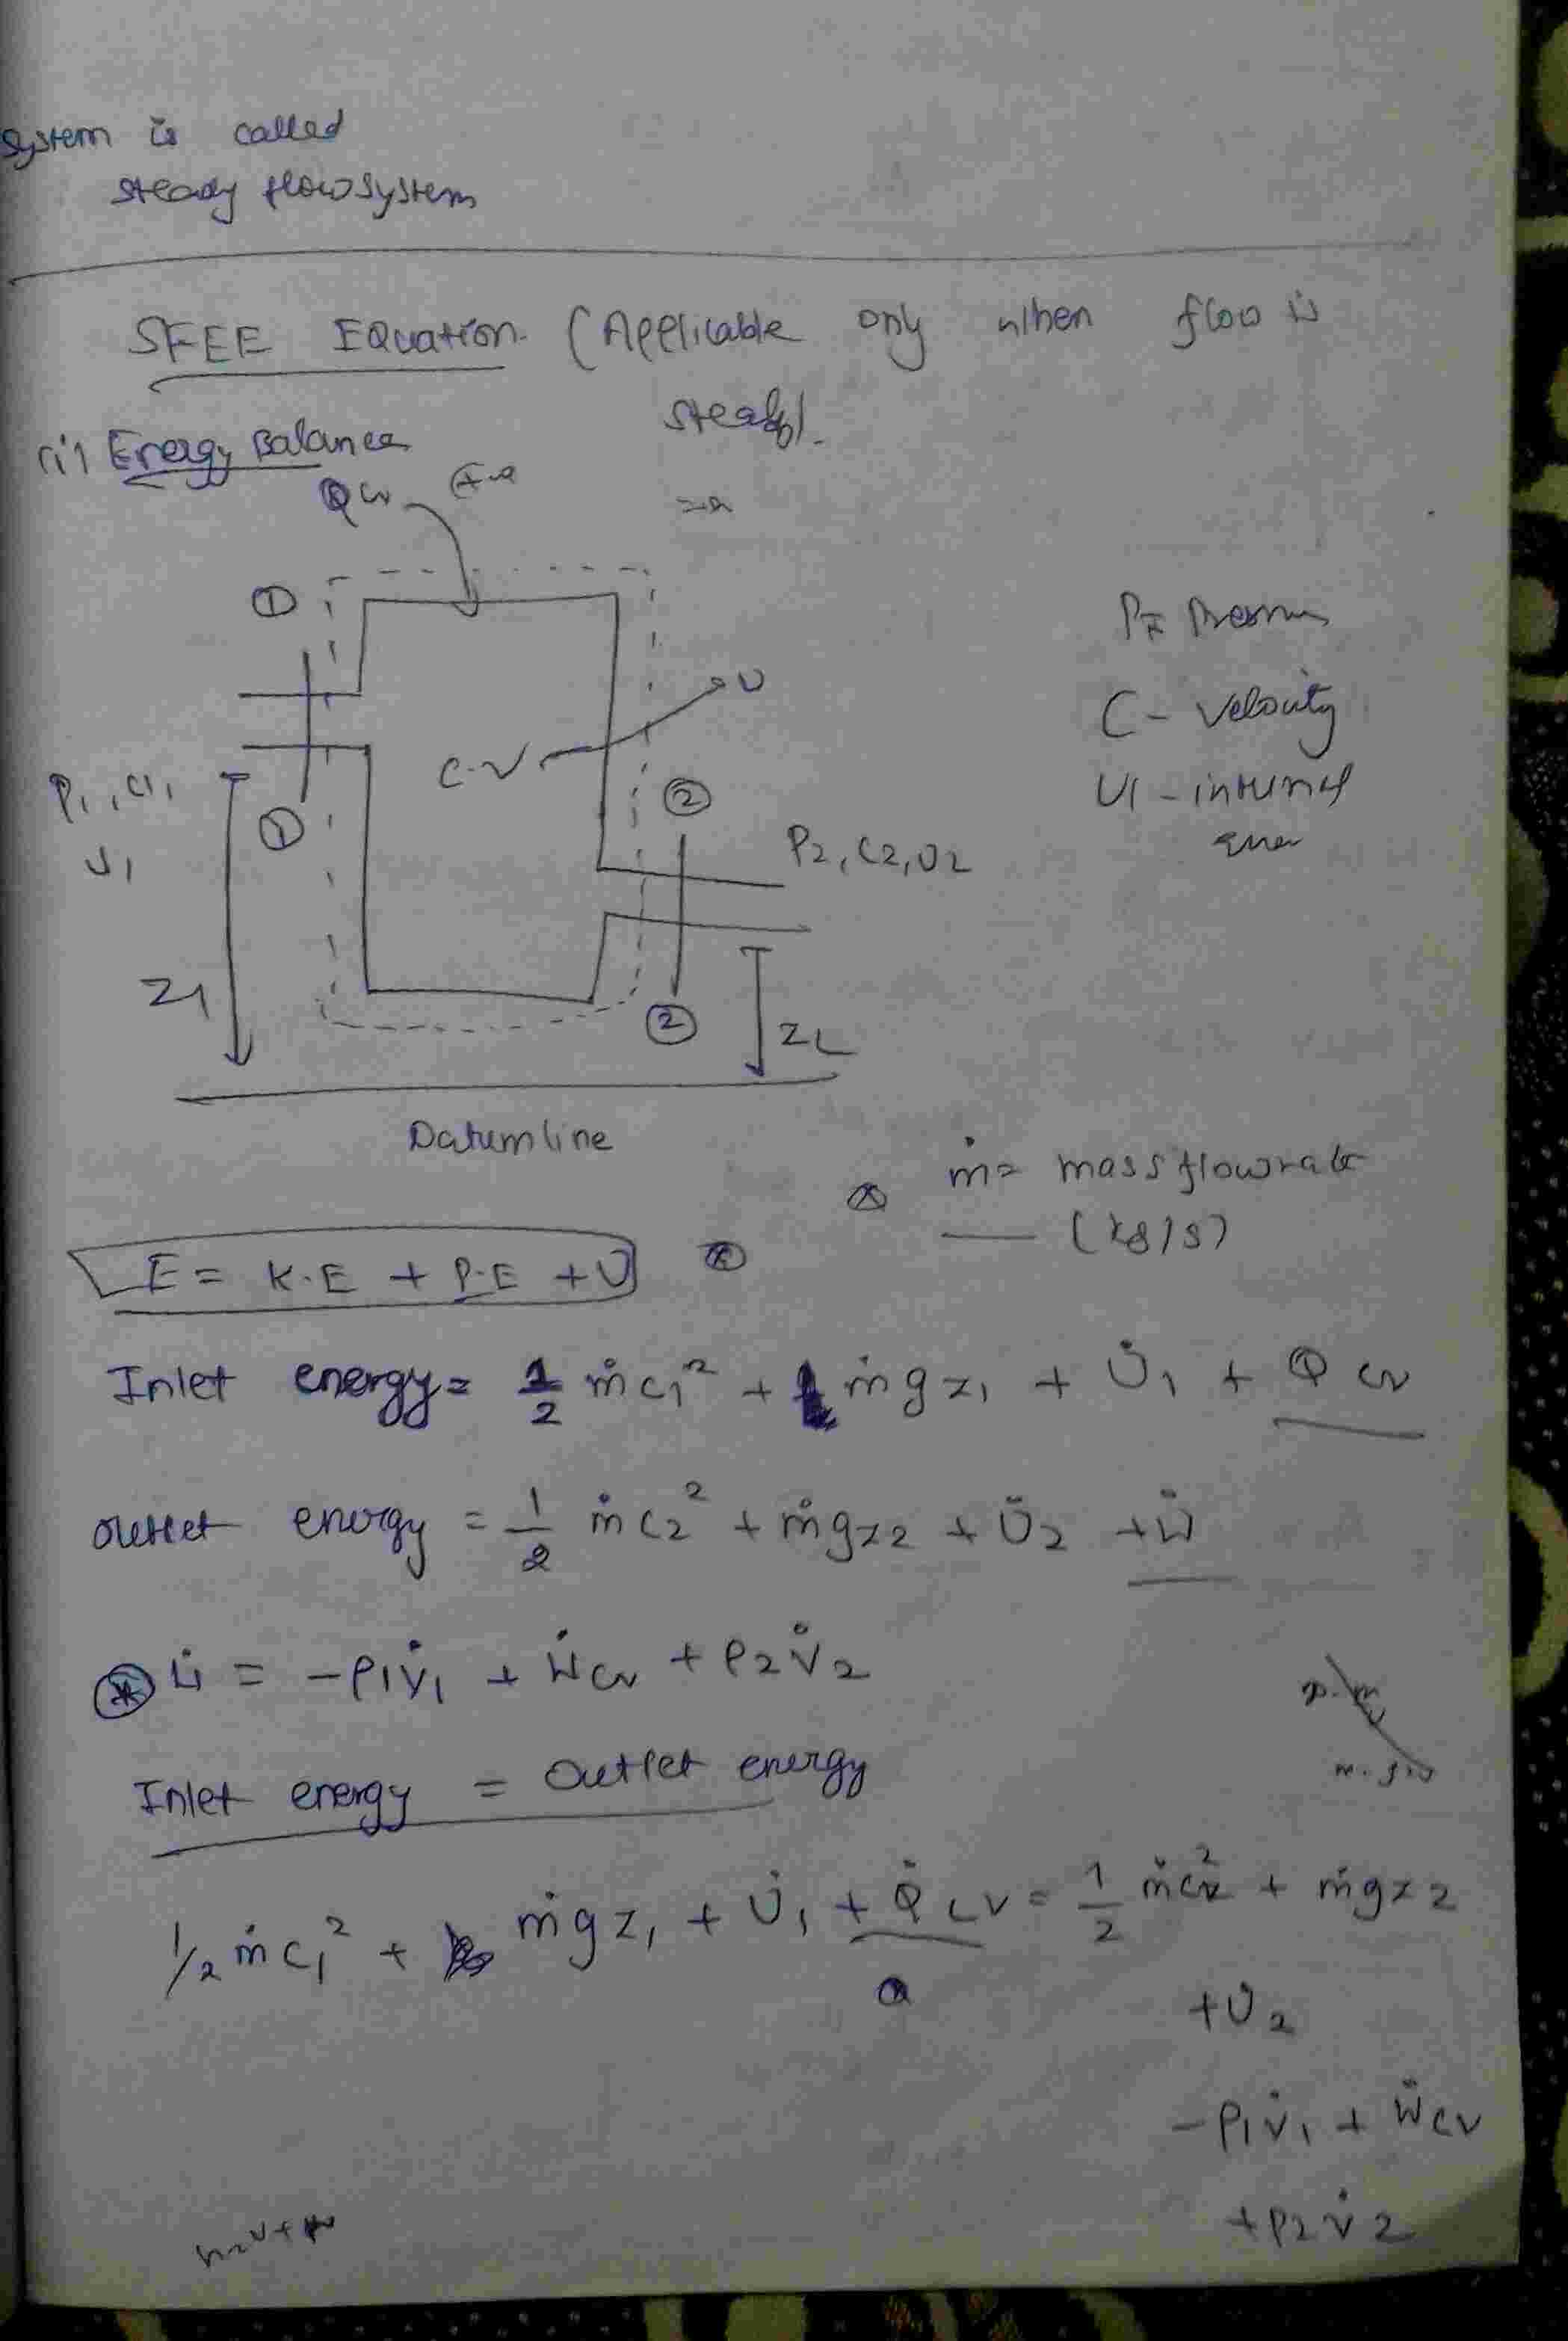 system is called
steady flow system
SFEE Equation. (Applicable only when flow is
steady).
(i) Energy Balance
Qcv +ve
①
U
C.V
P1, C1,
U1
①
②
P2, C2, U2
Z1
②
Z2
Datum line
P = Pressure
C - Velocity
U1 - internal
ṁ = mass flow rate
(kg/s)
E = K.E + P.E + U
Inlet energy = 1/2 ṁc1² + ṁgz1 + U̇1 + Qcv
outlet energy = 1/2 ṁc2² + ṁgz2 + U̇2 + Ẇ
Ẇ = -P1V̇1 + Ẇcv + P2V̇2
Inlet energy = Outlet energy
1/2 ṁc1² + ṁgz1 + U̇1 + Q̇cv = 1/2 ṁc2² + ṁgz2
+U̇2
-P1V̇1 + Ẇcv
+P2V̇2